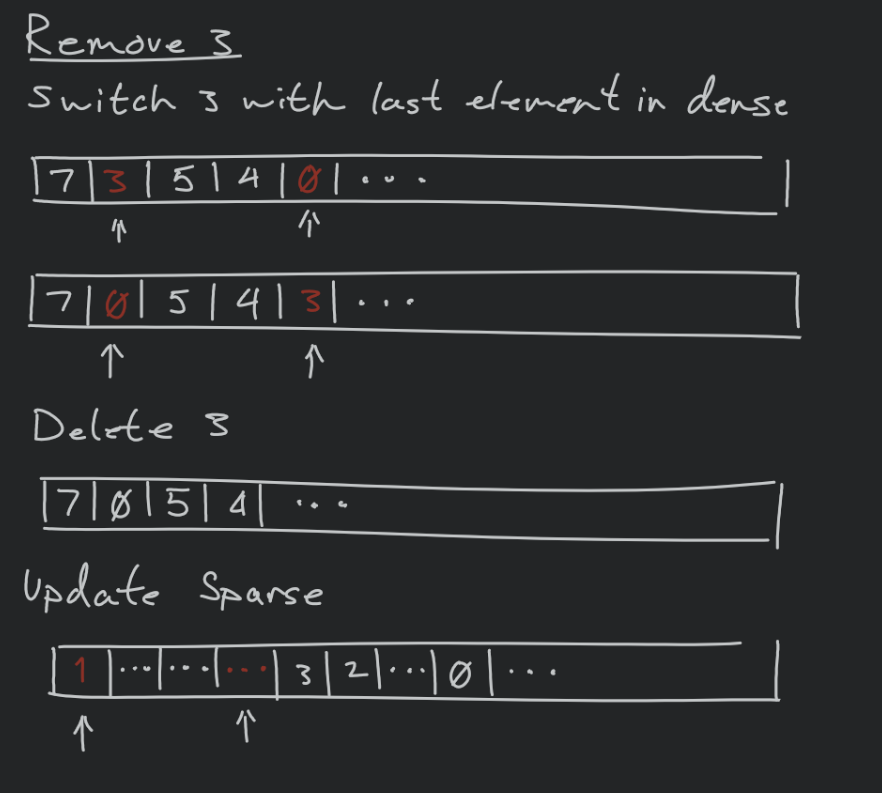 Remove 3
Switch 3 with last element in dense
7 | 3 | 5 | 4 | 0 | ...
↑ ↑
7 | 0 | 5 | 4 | 3 | ...
↑ ↑
Delete 3
7 | 0 | 5 | 4 | ...
Update Sparse
1 | ... | ... | ... | 3 | 2 | ... | 0 | ...
↑ ↑